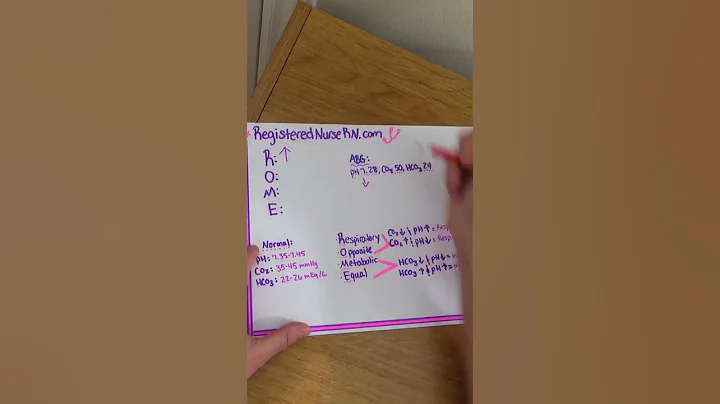 RegisteredNurseRN.com
R: ↑
O:
M:
E:
ABG:
pH 7.28, CO₂ 50, HCO₃ 24
↓
Normal:
pH: 7.35-7.45
CO₂: 35-45 mmHg
HCO₃: 22-26 mEq/L
Respiratory
Opposite
Metabolic
Equal
CO₂ ↓ pH ↑ =
CO₂ ↑ pH ↓ =
HCO₃ ↓ pH ↓ =
HCO₃ ↑ pH ↑ =